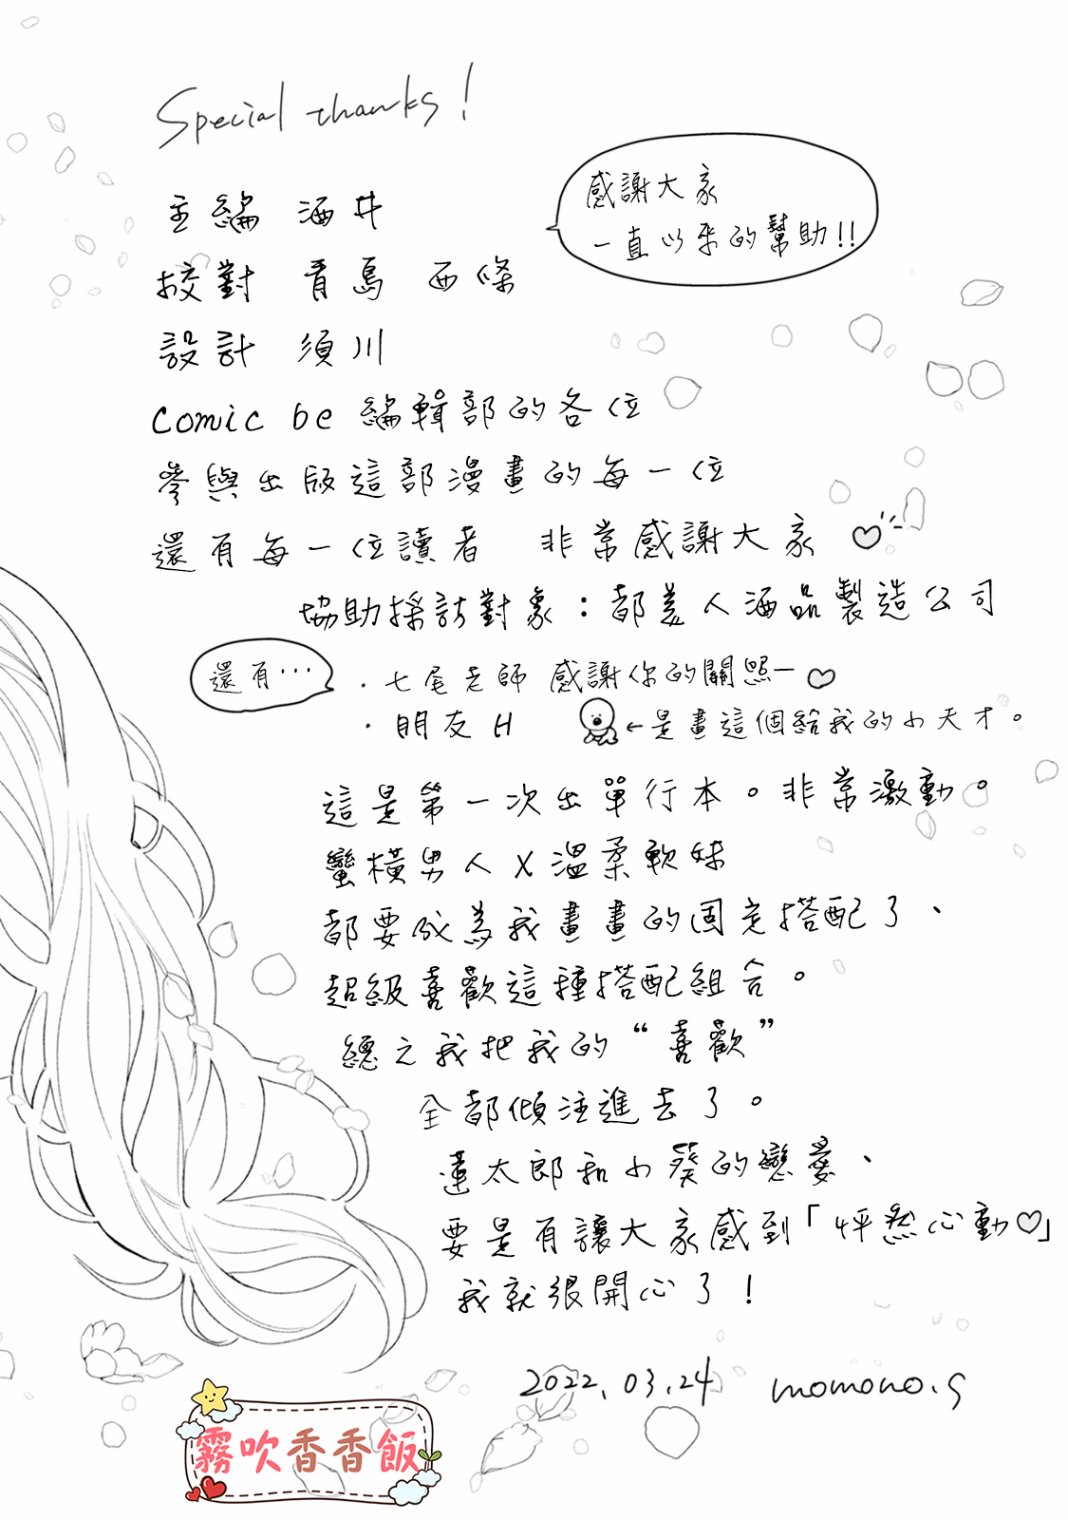 Special thanks!
感謝大家
一直以來的幫助!!
主編 酒井
校對 青島 西條
設計 須川
comic be 編輯部的各位
參與出版這部漫畫的每一位
還有每一位讀者 非常感謝大家♡
協助採訪對象：都美人酒品製造公司
還有…
・七尾老師 感謝你的關照ー♡
・朋友H ←是畫這個給我的小天才。
這是第一次出單行本。非常激動。
蠻橫男人X溫柔軟妹
都要成為我畫畫的固定搭配了、
超級喜歡這種搭配組合。
總之我把我的“喜歡”
全都傾注進去了。
蓮太郎和小葵的戀愛、
要是有讓大家感到「怦然心動♡」
我就很開心了！
2022.03.24 momono.g
霧吹香香飯